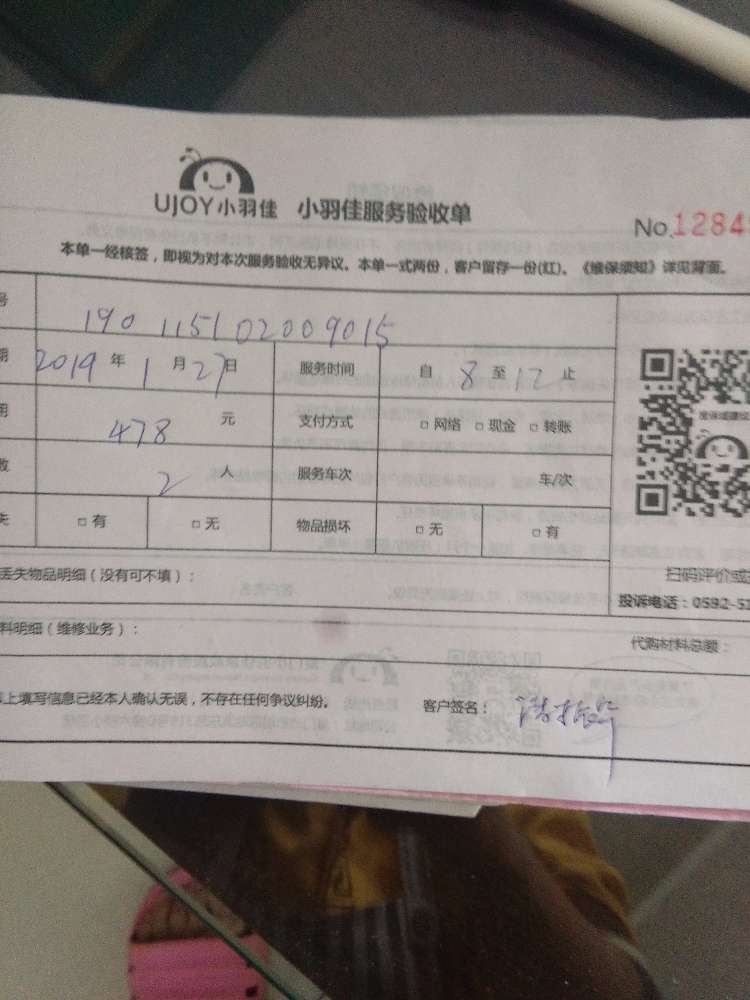 UJOY小羽佳 小羽佳服务验收单
No.1284
本单一经核签，即视为对本次服务验收无异议。本单一式两份，客户留存一份(红)。《维保须知》详见背面。
号 190115102009015
期 2019 年 1 月 27 日 服务时间 自 8 至 12 止
用 478 元 支付方式 □ 网络 □ 现金 □ 转账
数 2 人 服务车次 车/次
失 □ 有 □ 无 物品损坏 □ 无 □ 有
扫码评价或
丢失物品明细（没有可不填）：
投诉电话：0592-5
料明细（维修业务）：
代购材料总额：
上填写信息已经本人确认无误，不存在任何争议纠纷。 客户签名：